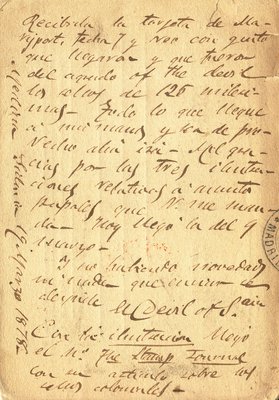 Recibida la tarjeta de Ma-
ryport, fecha 7 y veo con gusto
que llegaron y que fueron
del agrado of the devil
los sellos de 125 milesi-
mas. Todo lo que llegue
á mi mano y sea de pro-
vecho allá irá. Mil gra-
cias por las tres ilustra-
ciones relativas á asuntos
papales que V. me man-
da. Hoy llegó la del 9
marzo.
Y no habiendo novedad
ni nada que
despide
El Devil of Spain
Con la ilustracion llegó
el N.º The Stamp Journal
con un articulo sobre los
sellos coloniales.
Medina 12 Marzo 1878
MADRID